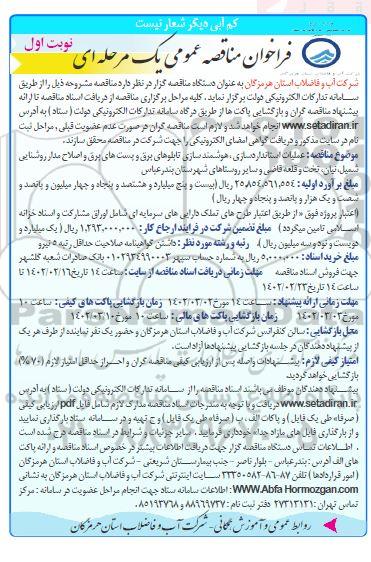 کم آبی دیگر شعار نیست
نوبت اول
فراخوان مناقصه عمومی یک مرحله ای
شرکت آب و فاضلاب استان هرمزگان به عنوان دستگاه مناقصه گزار در نظر دارد مناقصه مشروحه ذیل را از طریق
سـامانه تدارکات الکترونیکی دولت برگزار نماید. کلیه مراحل برگزاری مناقصه از دریافت اسناد مناقصه تا ارائه
پیشنهاد مناقصه گران و بازگشایی پاکت ها از طریق درگاه سامانه تدارکات الکترونیکی دولت ( ستاد ) به آدرس
www.setadiran.ir انجام خواهد شد و لازم است مناقصه گران در صورت عدم عضویت قبلی ، مراحل ثبت
نام در سایت مذکور و دریافت گواهی امضای الکترونیکی را جهت شرکت در مناقصه محقق سازند.
موضوع مناقصه : عملیات استانداردسازی ، هوشمند سازی تابلوهای برق و پست های برق و اصلاح مدار روشنایی
شمیل، نیان، تخت و قلعه قاضی و سایر روستاهای شهرستان بندرعباس
مبلغ برآورد اولیه : ۲۵،۸۵۴،۵۶۱،۵۵۴ ریال (بیست و پنج میلیارد و هشتصد و پنجاه و چهار میلیون و پانصد و
شصت و یک هزار و پانصد و پنجاه و چهار ریال )
(اعتبار پروژه فوق « از طریق اعتبار طرح های تملک دارایی های سرمایه ای شامل اوراق مشارکت و اسناد خزانه
اسـلامی تامین میگردد) مبلغ تضمین شرکت در فرآیند ارجاع کار: ۱،۲۹۳،۰۰۰،۰۰۰ ریال ( یک میلیارد و
دویست و نود و سه میلیون ریال )، رتبه و رشته مورد نظر : داشتن گواهینامه صلاحیت حداقل رتبه ۵ نیرو
مبلغ خرید اسناد: ۵،۰۰۰،۰۰۰ ریال به شماره حساب سپهر ۰۱۰۲۹۳۴۹۹۰۰۰۲ بانک صادرات شعبه گلشهر
جهت فروش اسناد مناقصه مهلت زمانی دریافت اسناد مناقصه از سایت : ساعت ۱۴ تاریخ ۱۴۰۲/۰۲/۱۶ تا
ساعت ۱۴ تاریخ ۱۴۰۲/۰۲/۲۳
مهلت زمانی ارائه پیشنهاد : ساعت ۱۴ مورخ ۱۴۰۲/۰۳/۰۲ زمان بازگشایی پاکت های کیفی : ساعت ۱۰
مورخ ۱۴۰۲/۰۳/۰۳ زمان بازگشایی پاکت های مالی : ساعت ۱۰ مورخ ۱۴۰۲/۰۳/۱۰
محل بازگشایی : سالن کنفرانس شرکت آب و فاضلاب استان هرمزگان و حضور یک نفر نماینده از طرف هر یک
از پیشنهاد دهندگان در جلسه بازگشایی پیشنهادها آزاد است.
امتیاز کیفی لازم : پیشـنهادات واصله پس از ارزیابی کیفی مناقصه گران و احـراز حداقل امتیاز لازم (۷۰%)
بازگشایی خواهد گردید.
پیشنهاد دهندگان موظف می باشند اسناد مناقصه را از سـامانه تدارکات الکترونیکی دولت ( ستاد )به آدرس
www.setadiran.ir دریافت و با توجه به مندرجات اسناد مناقصه مدارک لازم شامل فایل pdf ارزیابی کیفی
( صرفاً طی یک فایل ) و پاکات الف ، ب ( صرفاً طی یک فایل ) و ج تهیه و در سـامانه ستاد بارگذاری نمایند
و از بارگذاری فایل های مازاد جداً خودداری فرمایند . سایر جزئیات و شرایط در اسناد مناقصه درج شده است
. اطلاعات تماس دستگاه مناقصه گزار جهت دریافت اطلاعات بیشتر در خصوص اسناد مناقصه و ارائه پاکت
های الف : آدرس : بندرعباس - بلوار ناصر - جنب بیمارستان شریعتی - شرکت آب و فاضلاب استان هرمزگان
( امور قراردادها ) تلفن ۸۷-۸۶-۳۳۳۵۰۵۸۲ سایت اینترنتی شرکت آب و فاضلاب استان هرمزگان به نشانی
www.Abfa Hormozgan.com : اطلاعات سامانه ستاد جهت انجام مراحل عضویت در سامانه : مرکز
تماس تهران: ۲۷۳۱۳۱۳۱ دفتر ثبت نام : ۸۸۹۶۹۷۳۷ و ۸۵۱۹۳۷۶۸
روابط عمومی و آموزش همگانی - شرکت آب و فاضلاب استان هرمزگان